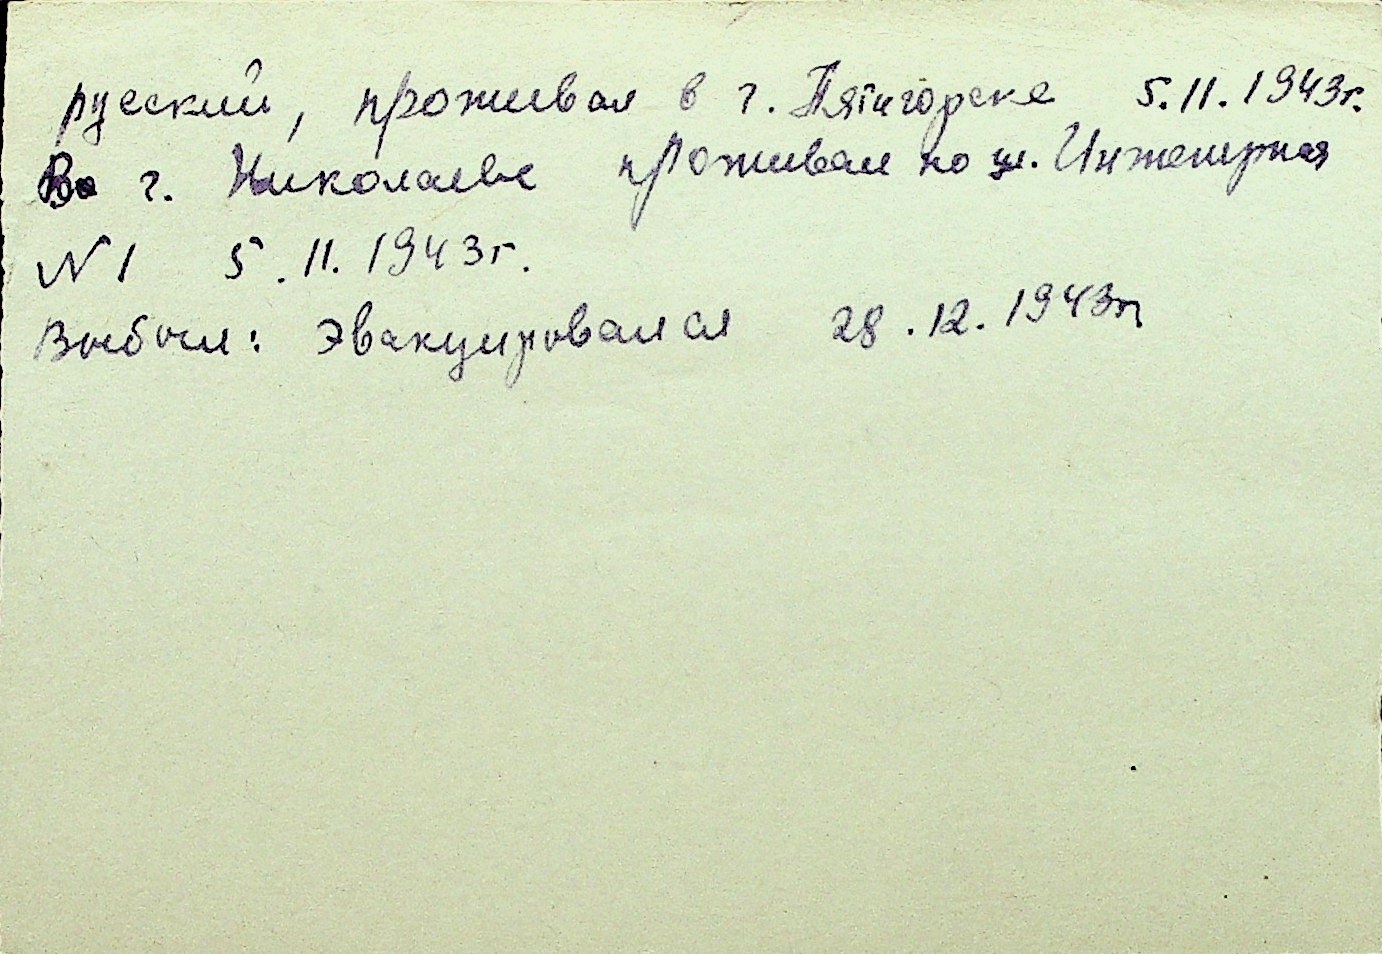 русский, проживал в г. Пятигорске 5.11.1943г.
В г. Николаеве проживал по ул. Инженерная
N 1 5.11.1943г.
Выбыл: Эвакуировался 28.12.1943г